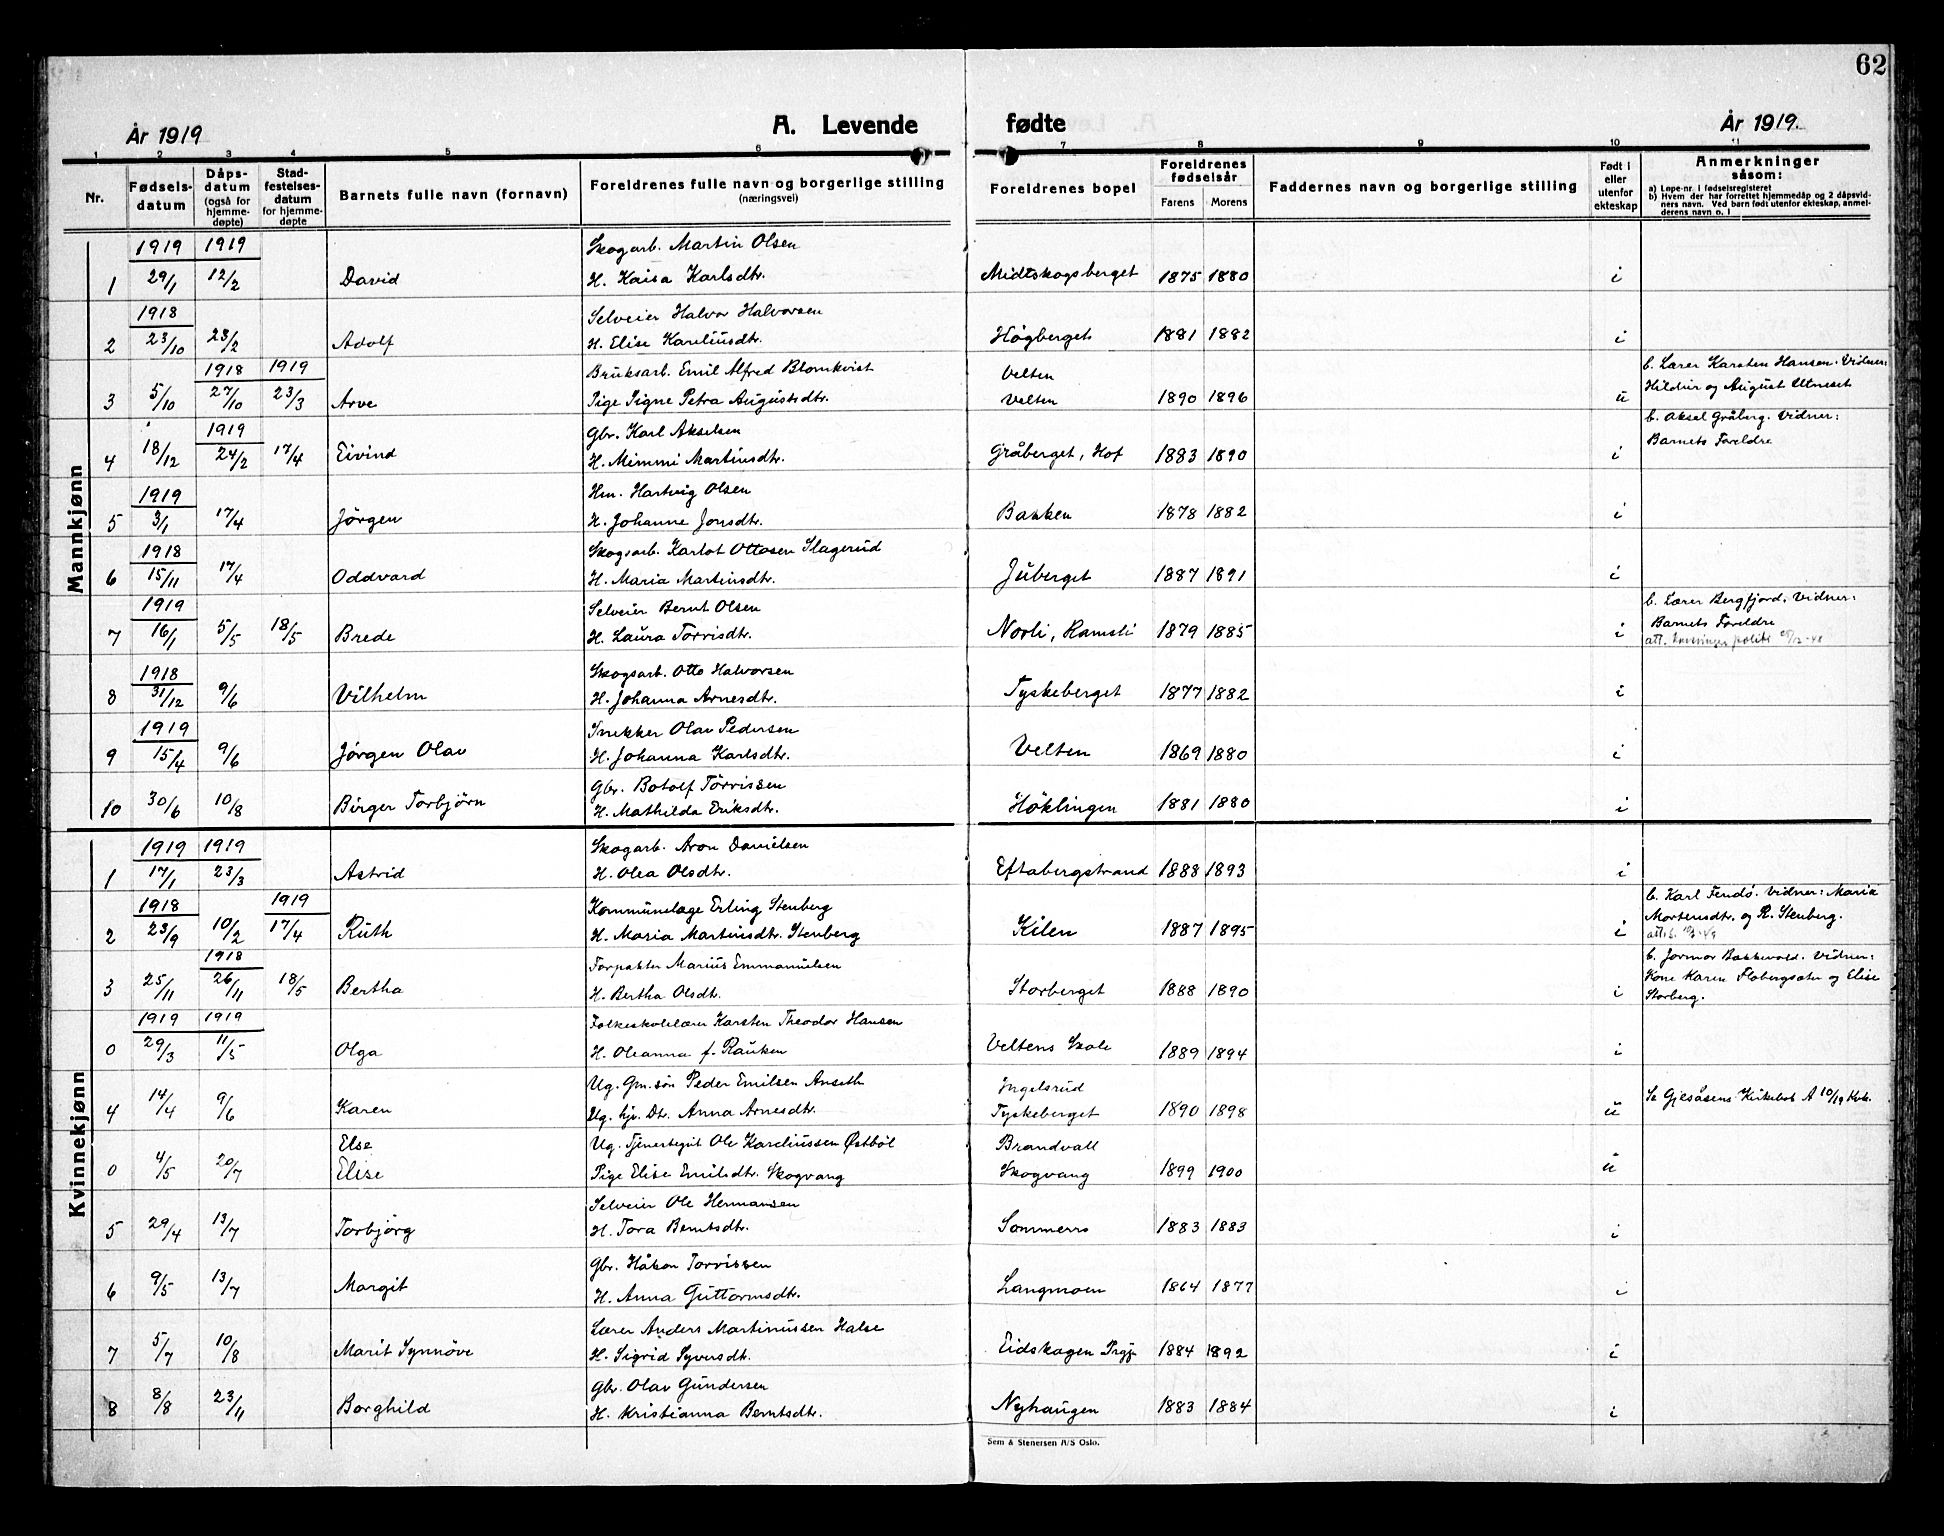 62
År 1919
A. Levende
fødte
År 1919.
1 2 3 4 5 6 7 8 9 10 11
Nr.
Fødsels-
datum
Dåps-
datum
(også for
hjemme-
døpte)
Stad-
festelses-
datum
for hjemme-
døpte
Barnets fulle navn (fornavn)
Foreldrenes fulle navn og borgerlige stilling
(næringsvei)
Foreldrenes bopel
Foreldrenes
fødselsår
Farens Morens
Faddernes navn og borgerlige stilling
Født i
eller
utenfor
ekteskap
Anmerkninger
såsom:
a) Løpe-nr. i fødselsregisteret
b) Hvem der har forrettet hjemmedåp og 2 dåpsvid-
ners navn. Ved barn født utenfor ekteskap, anmel-
derens navn o. l
Mannkjønn
1919 1919 Skogarb. Martin Olsen
1 29/1 12/2 David H. Kaisa Karlsdtr. Midtskogsberget 1875 1880 i
1918 Selveier Halvor Halvorsen
2 23/10 23/2 Adolf H. Elise Kareliusdtr. Högberget 1881 1882 i
1918 1919 Bruksarb. Emil Alfred Blomkvist Velten b. Lærer Karsten Hansen. Vidner:
3 5/10 27/10 23/3 Arve Pige Signe Petra Augustsdtr. Velten 1890 1896 u Hildur og August Utneset
1919 Gbr. Karl Akselsen b. Aksel Gråberg. Vidner:
4 18/12 24/2 17/4 Eivind H. Mimmi Martinsdtr. Gråberget, Hof 1883 1890 i Barnets Foreldre
1919 Hm. Hartvig Olsen
5 3/1 17/4 Jörgen H. Johanne Jonsdtr. Bakken 1878 1882 i
1918 Skogsarb. Karlot Ottosen Slagerud
6 15/11 17/4 Oddvard H. Maria Martinsdtr. Juberget 1887 1891 i
1919 Selveier Bernt Olsen b. Lærer Bergfjord. Vidner:
7 16/1 5/5 18/5 Brede H. Laura Torrisdtr. Norli, Ramsli 1879 1885 i Barnets Foreldre
1918 Skogsarb. Otto Halvorsen
8 31/12 9/6 Vilhelm H. Johanna Arnesdtr. Tyskeberget 1877 1882 i
1919 Snekker Olav Pedersen
9 15/4 9/6 Jørgen Olav H. Johanna Karlsdtr. Velten 1869 1880 i
Gbr. Botolf Törrissen
10 30/6 10/8 Birger Torbjörn H. Mathilda Eriksdtr. Höklingen 1881 1880 i
Kvinnekjønn
1919 1919 Skogarb. Aron Danielsen
1 17/1 23/3 Astrid H. Olea Olsdtr. Eftabergstrand 1888 1893 i
1918 1919 Kommunelæge Erling Stenberg b. Karl Fendö. Vidner: Maria
2 23/9 10/2 17/4 Ruth H. Maria Martinsdtr. Stenberg Kilen 1887 1895 i Mortensdtr. og R. Stenberg.
1918 Forpakter Marius Emmanuelsen b. Jormor Bakkevold. Vidner:
3 25/11 26/11 18/5 Bertha H. Bertha Olsdtr. Storberget 1888 1890 i Kone Karen Flobergsæter og Elise
Storberg.
1919 1919 Folkeskolelærer Karsten Theodor Hansen
0 29/3 11/5 Olga H. Oleanna f. Rauken Veltens Skole 1889 1894 i
Ug. Gm.sön Peder Emilsen Anseth Ingelsrud
4 14/4 9/6 Karen Ug. hjv. Dtr. Anna Arnesdtr. Tyskeberget 1890 1898 u Se Gjesåsens Kirkebok A 10/19 Kvk.
Else Ug. Tjenestegut Ole Kareliussen Østböl Brandvall
0 4/5 20/7 Elise Pige Elise Emilsdtr. Skogvang Skogvang 1899 1900 u
Selveier Ole Hermansen
5 29/4 13/7 Torbjörg H. Tora Berntsdtr. Sommerro 1883 1883 i
Gbr. Håkon Torrissen
6 9/5 13/7 Margit H. Anna Guttormsdtr. Langmoen 1864 1877 i
Lærer Anders Martinussen Halse
7 5/7 10/8 Marit Synnöve H. Sigrid Syversdtr. Eidskogen Prgj. 1884 1892 i
Gbr. Olav Gundersen
8 8/8 23/11 Borghild H. Kristianna Berntsdtr. Nyhaugen 1883 1884 i
Sem & Stenersen A/S Oslo.